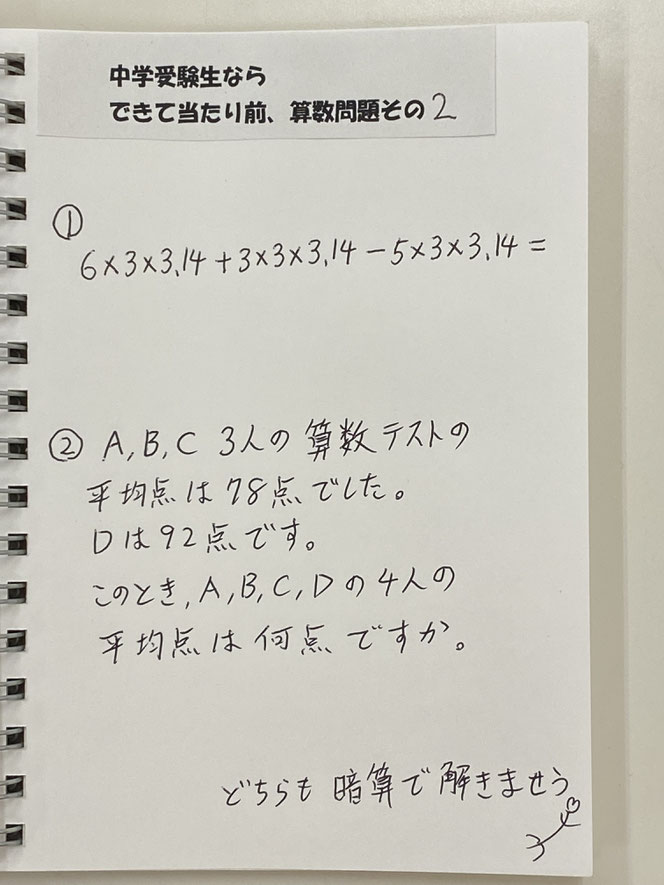 中学受験生なら
できて当たり前、算数問題その2
①
6×3×3.14+3×3×3.14-5×3×3.14=
② A,B,C 3人の算数テストの
平均点は78点でした。
Dは92点です。
このとき,A,B,C,Dの4人の
平均点は何点ですか。
どちらも暗算で解きませう